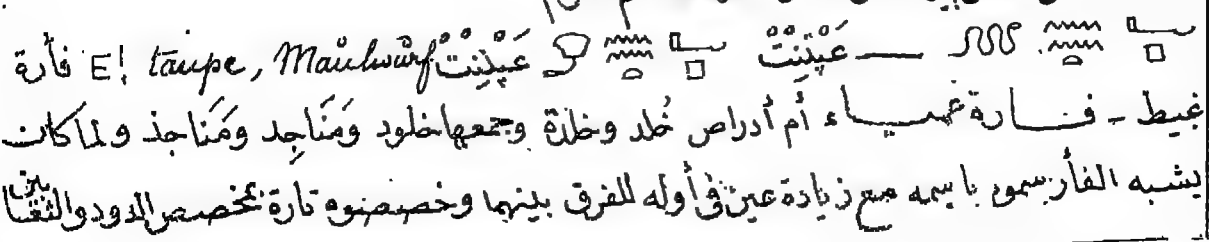 عَپِنِتْ — عَپِنِنِتْ E! taupe, Maulwurf فأرة
غيط – فارة عمياء أم أدراص خُلد وخلدة وجمعها خلود ومَنَاجِد ومَناجذ ولما كان
يشبه الفأر سموه باسمه مع زيادة عين في أوله للفرق بينهما وخصصوه تارة بمخصص الدود والثعابين